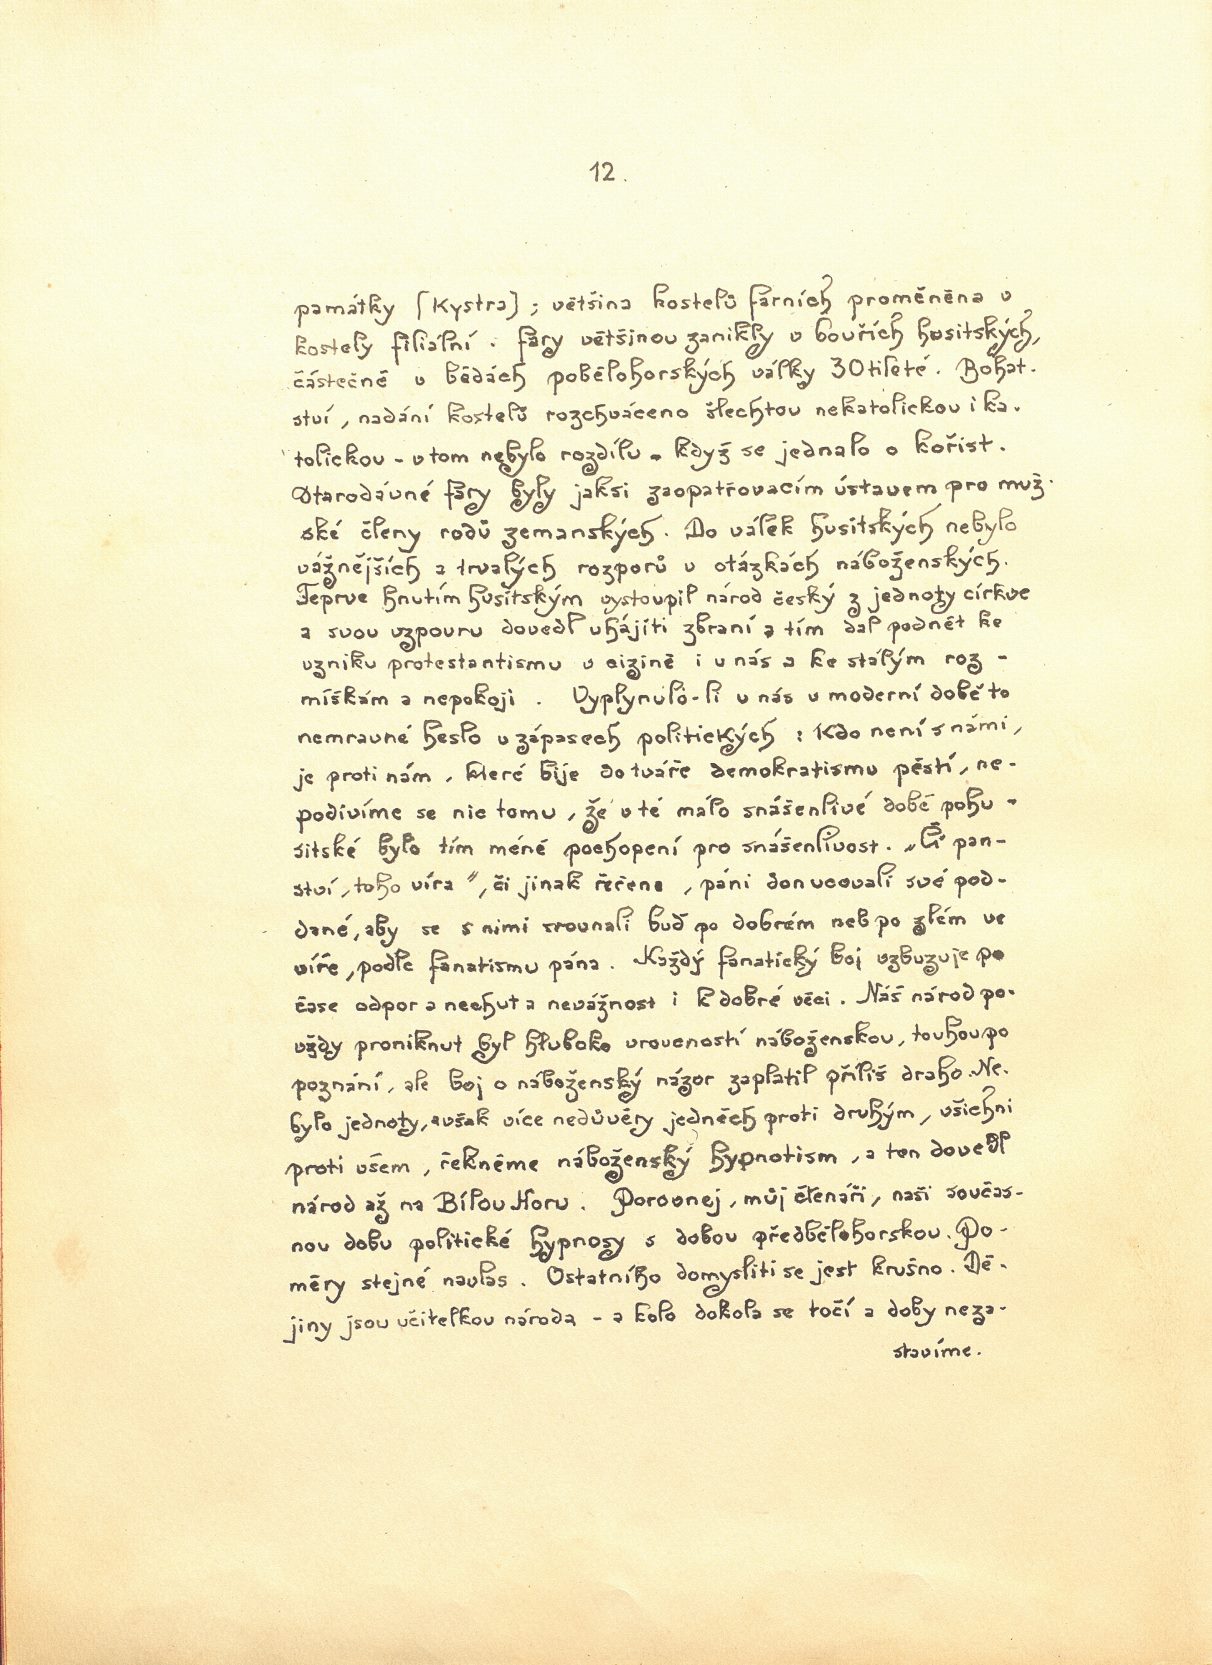 12.
památky (Kystra); většina kostelů farních proměněna v
kostely filiální. Fary většinou zanikly v bouřích husitských,
částečně v bědách pobělohorských války 30tileté. Bohat-
ství, nadání kostelů rozchváceno šlechtou nekatolickou i ka-
tolickou - v tom nebylo rozdílu - když se jednalo o kořist.
Starodávné fary byly jaksi zaopatřovacím ústavem pro muž-
ské členy rodů zemanských. Do válek husitských nebylo
vážnějších a trvalých rozporů v otázkách náboženských.
Teprve hnutím husitským vystoupil národ český z jednoty církve
a svou vzpouru dovedl uhájíti zbraní a tím dal podnět ke
vzniku protestantismu v cizině i u nás a ke stálým roz-
míškám a nepokoji. Vyplynulo-li u nás v moderní době to
nemravné heslo v zápasech politických: Kdo není s námi,
je proti nám, které bije do tváře demokratismu pěstí, ne-
podivíme se nic tomu, že v té málo snášenlivé době pohu-
sitské bylo tím méně pochopení pro snášenlivost. „Čí pan-
ství, toho víra", či jinak řečeno, páni donucovali své pod-
dané, aby se s nimi srovnali buď po dobrém neb po zlém ve
víře, podle fanatismu pána. Každý fanatický boj vzbuzuje po
čase odpor a nechut a nevážnost i k dobré věci. Náš národ po-
vždy proniknut byl hluboko vroucností náboženskou, touhou po
poznání, ale boj o náboženský názor zaplatil příliš draho. Ne-
bylo jednoty, avšak více nedůvěry jedněch proti druhým, všichni
proti všem, řekněme náboženský hypnotism, a ten dovedl
národ až na Bílou Horu. Porovnej, můj čtenáři, naši součas-
nou dobu politické hypnosy s dobou předbělohorskou. Po-
měry stejné navlas. Ostatního domysliti se jest krušno. Dě-
jiny jsou učitelkou národa - a kolo dokola se točí a doby neza-
stavíme.